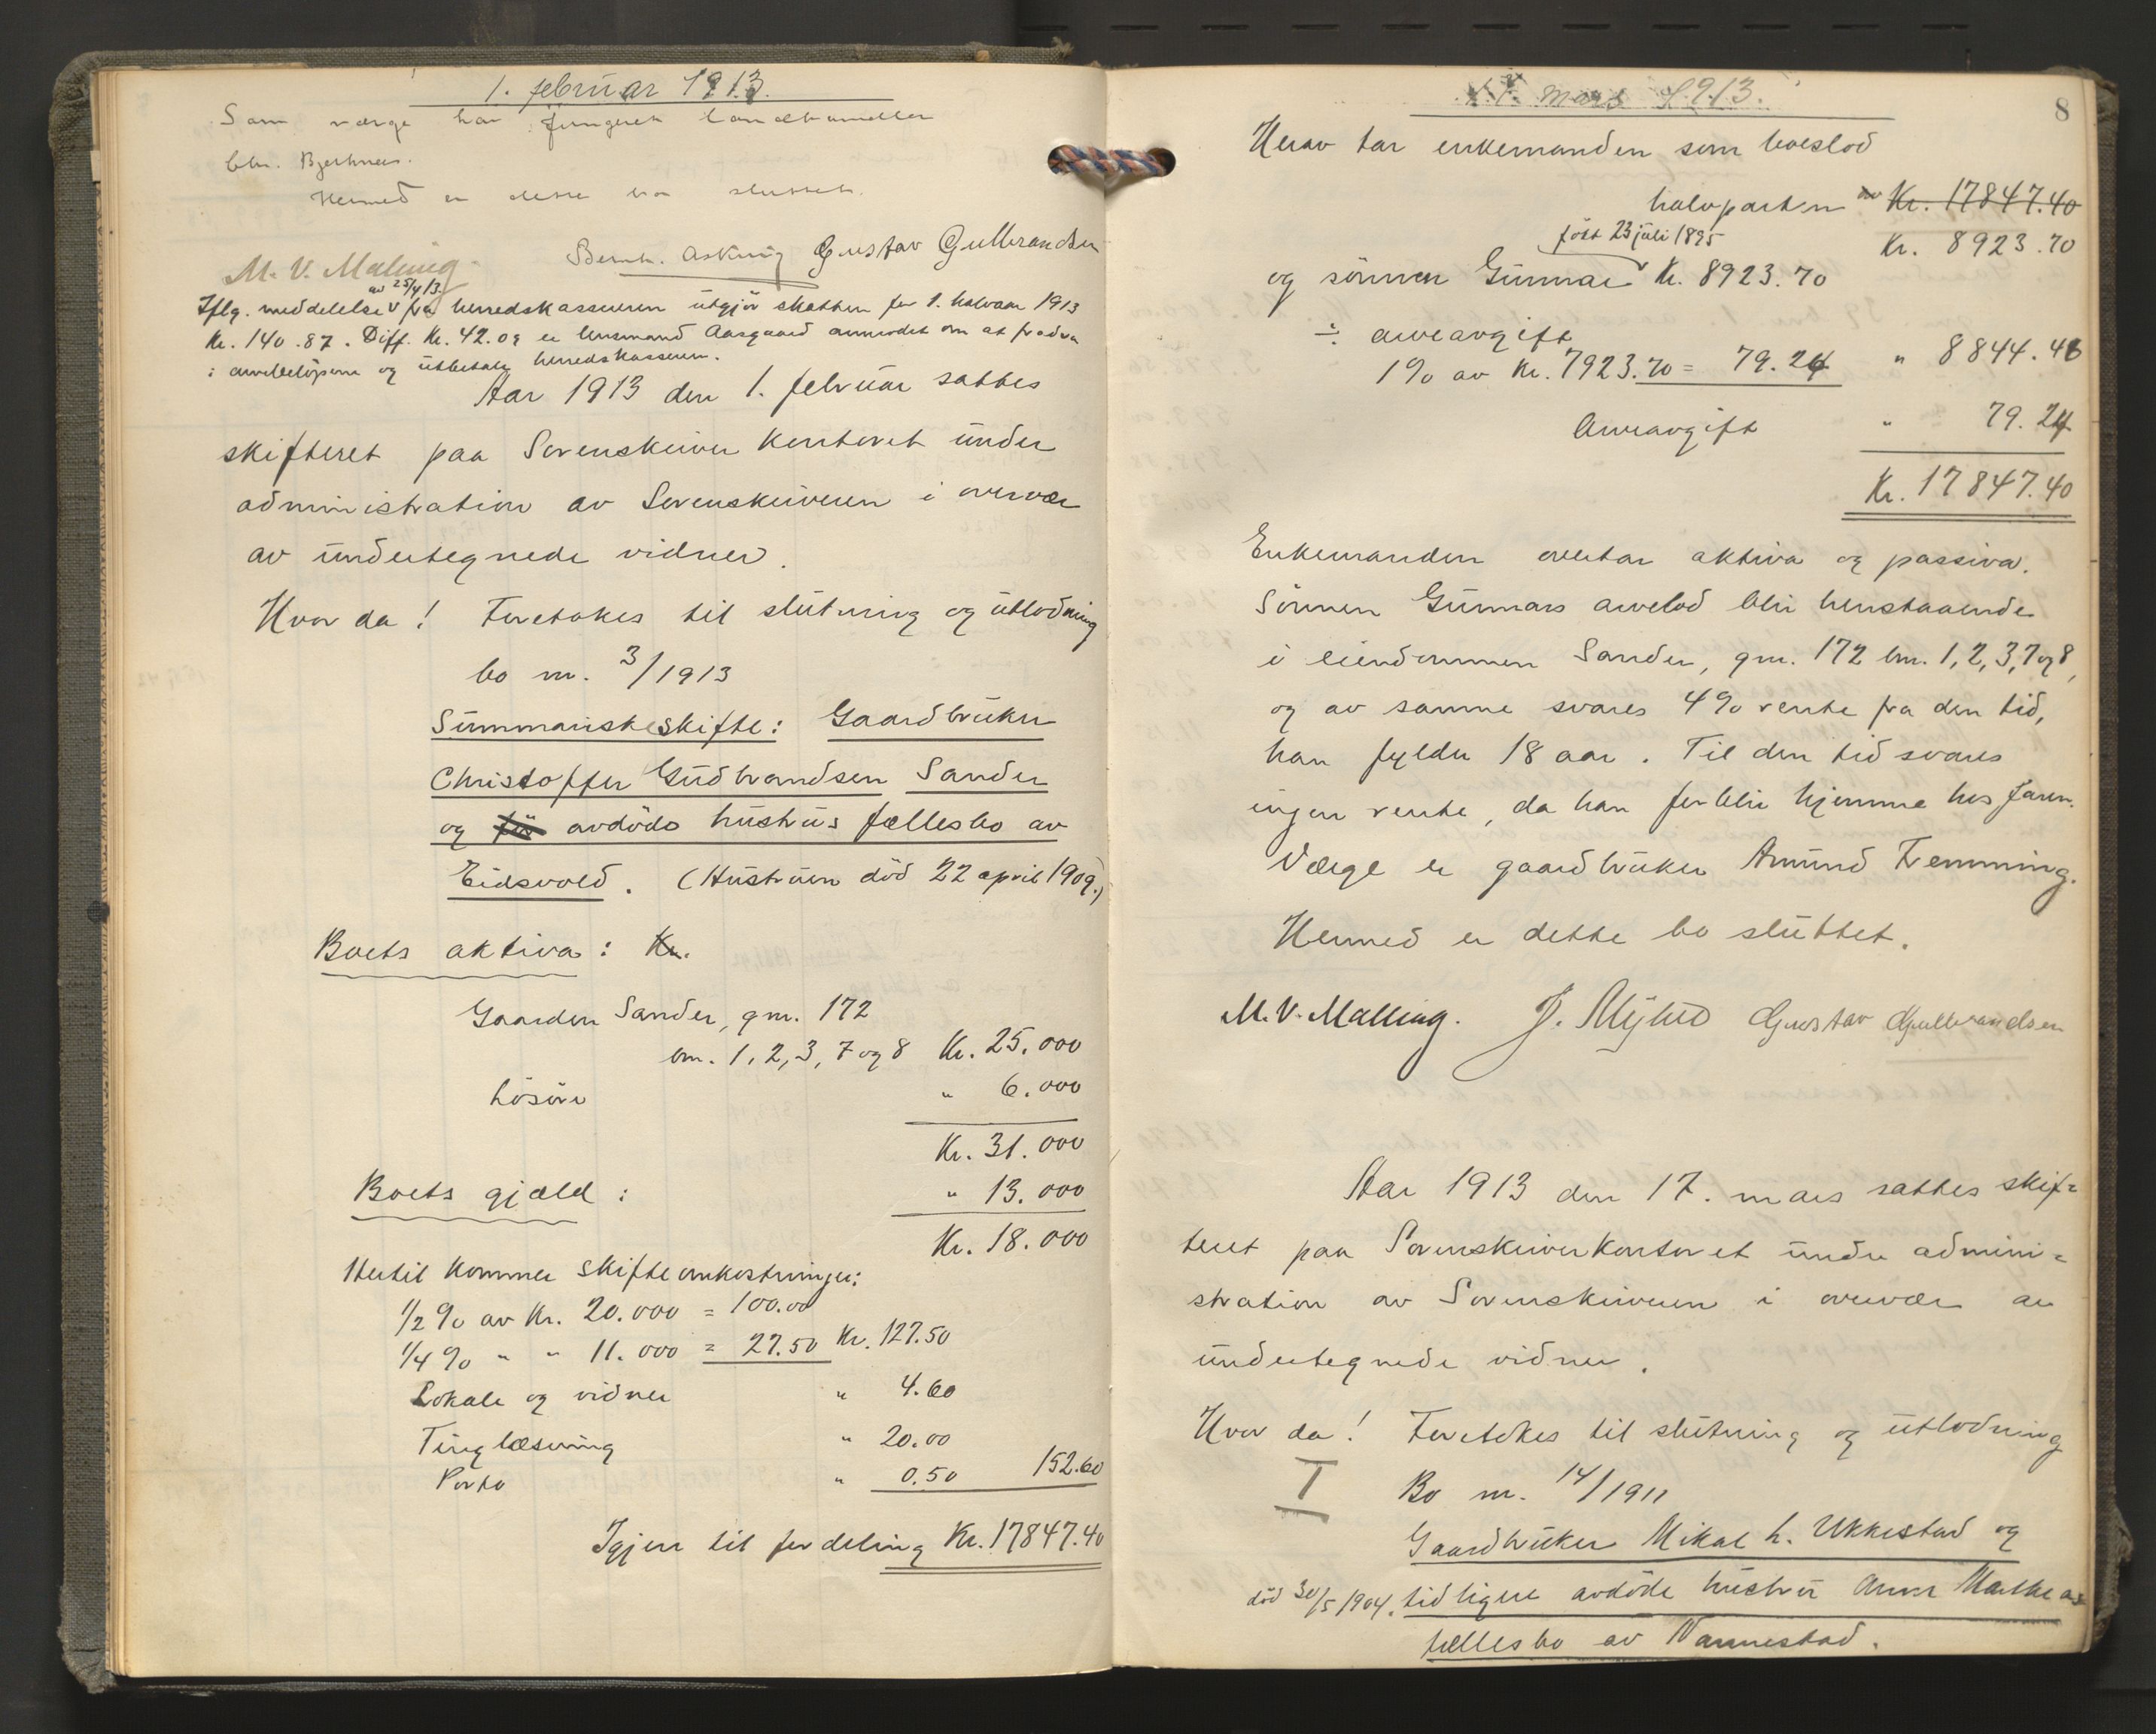 1. februar 1913.
Som værge har fungeret landhandler
Chr. Bjerknes.
Hermed er dette bo sluttet.
M. V. Malling Bernh. Asking Gustav Gulbrandsen
av 25/4 13
Iflg. meddelelse fra herredskassereren utgjör skatten for 1. halvaar 1913
Kr. 140.87. Diff. Kr. 42.09 er lensmand Aasgaard anmodet om at fradra
i arvebelöpene og utbetale herredskassereren.
Aar 1913 den 1. februar sattes
skifteret paa Sorenskriver kontoret under
administration av Sorenskriveren i overvær
av undertegnede vidner.
Hvor da! Foretokes til slutning og utlodning
bo nr. 3/1913
Summariskeskifte: Gaardbruker
Christoffer Gudbrandsen Sander
og avdöde hustrus fællesbo av
Eidsvold. (Hustruen död 22 april 1909.)
Boets aktiva: Kr.
Gaarden Sander, gnr. 172
bnr. 1, 2, 3, 7 og 8 Kr. 25.000
Lösöre " 6.000
Kr. 31.000
Boets gjæld: " 13.000
Kr. 18.000
Hertil kommer skifteomkostninger:
1/2 % av Kr. 20.000 = 100.00
1/4 % " " 11.000 = 27.50 Kr. 127.50
Lokale og vidner " 4.60
Tinglæsning " 20.00
Porto " 0.50 152.60
Igjen til fordeling Kr. 17847.40
17. mars 1913.
8
Herav tar enkemanden som boeslod
halvparten av Kr. 17847.40
Kr. 8923.70
født 23 juli 1895
og sönnen Gunnar Kr. 8923.70
÷ arveavgift
1% av Kr. 7923.70 = 79.24 " 8844.46
Arveavgift " 79.24
Kr. 17847.40
Enkemanden overtar aktiva og passiva.
Sönnen Gunnars arvelod blir henstaaende
i eiendommen Sander, gnr. 172 bnr. 1, 2, 3, 7 og 8,
og av samme svares 4% rente fra den tid,
han fylder 18 aar. Til den tid svares
ingen rente, da han forblir hjemme hos faren.
Værge er gaardbruker Amund Femming.
Hermed er dette bo sluttet.
M. V. Malling. J. Myhre Gustav Gulbrandsen
Aar 1913 den 17. mars sattes skif=
teret paa Sorenskriverkontoret under admini=
stration av Sorenskriveren i overvær av
undertegnede vidner.
Hvor da! Foretokes til slutning og utlodning
I Bo nr. 14/1911
Gaardbruker Mikal H. Ukkestad og
död 30/5 1904. tidligere avdöde hustru Anne Marthe as
fællesbo av Nannestad.